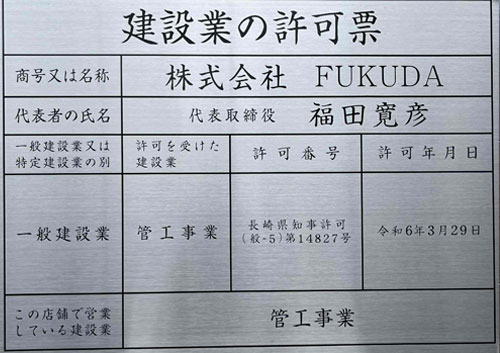 建設業の許可票
商号又は名称
株式会社 FUKUDA
代表者の氏名
代表取締役 福田寛彦
一般建設業又は
特定建設業の別
許可を受けた
建設業
許可番号
許可年月日
一般建設業
管工事業
長崎県知事許可
(般-5)第14827号
令和6年3月29日
この店舗で営業
している建設業
管工事業